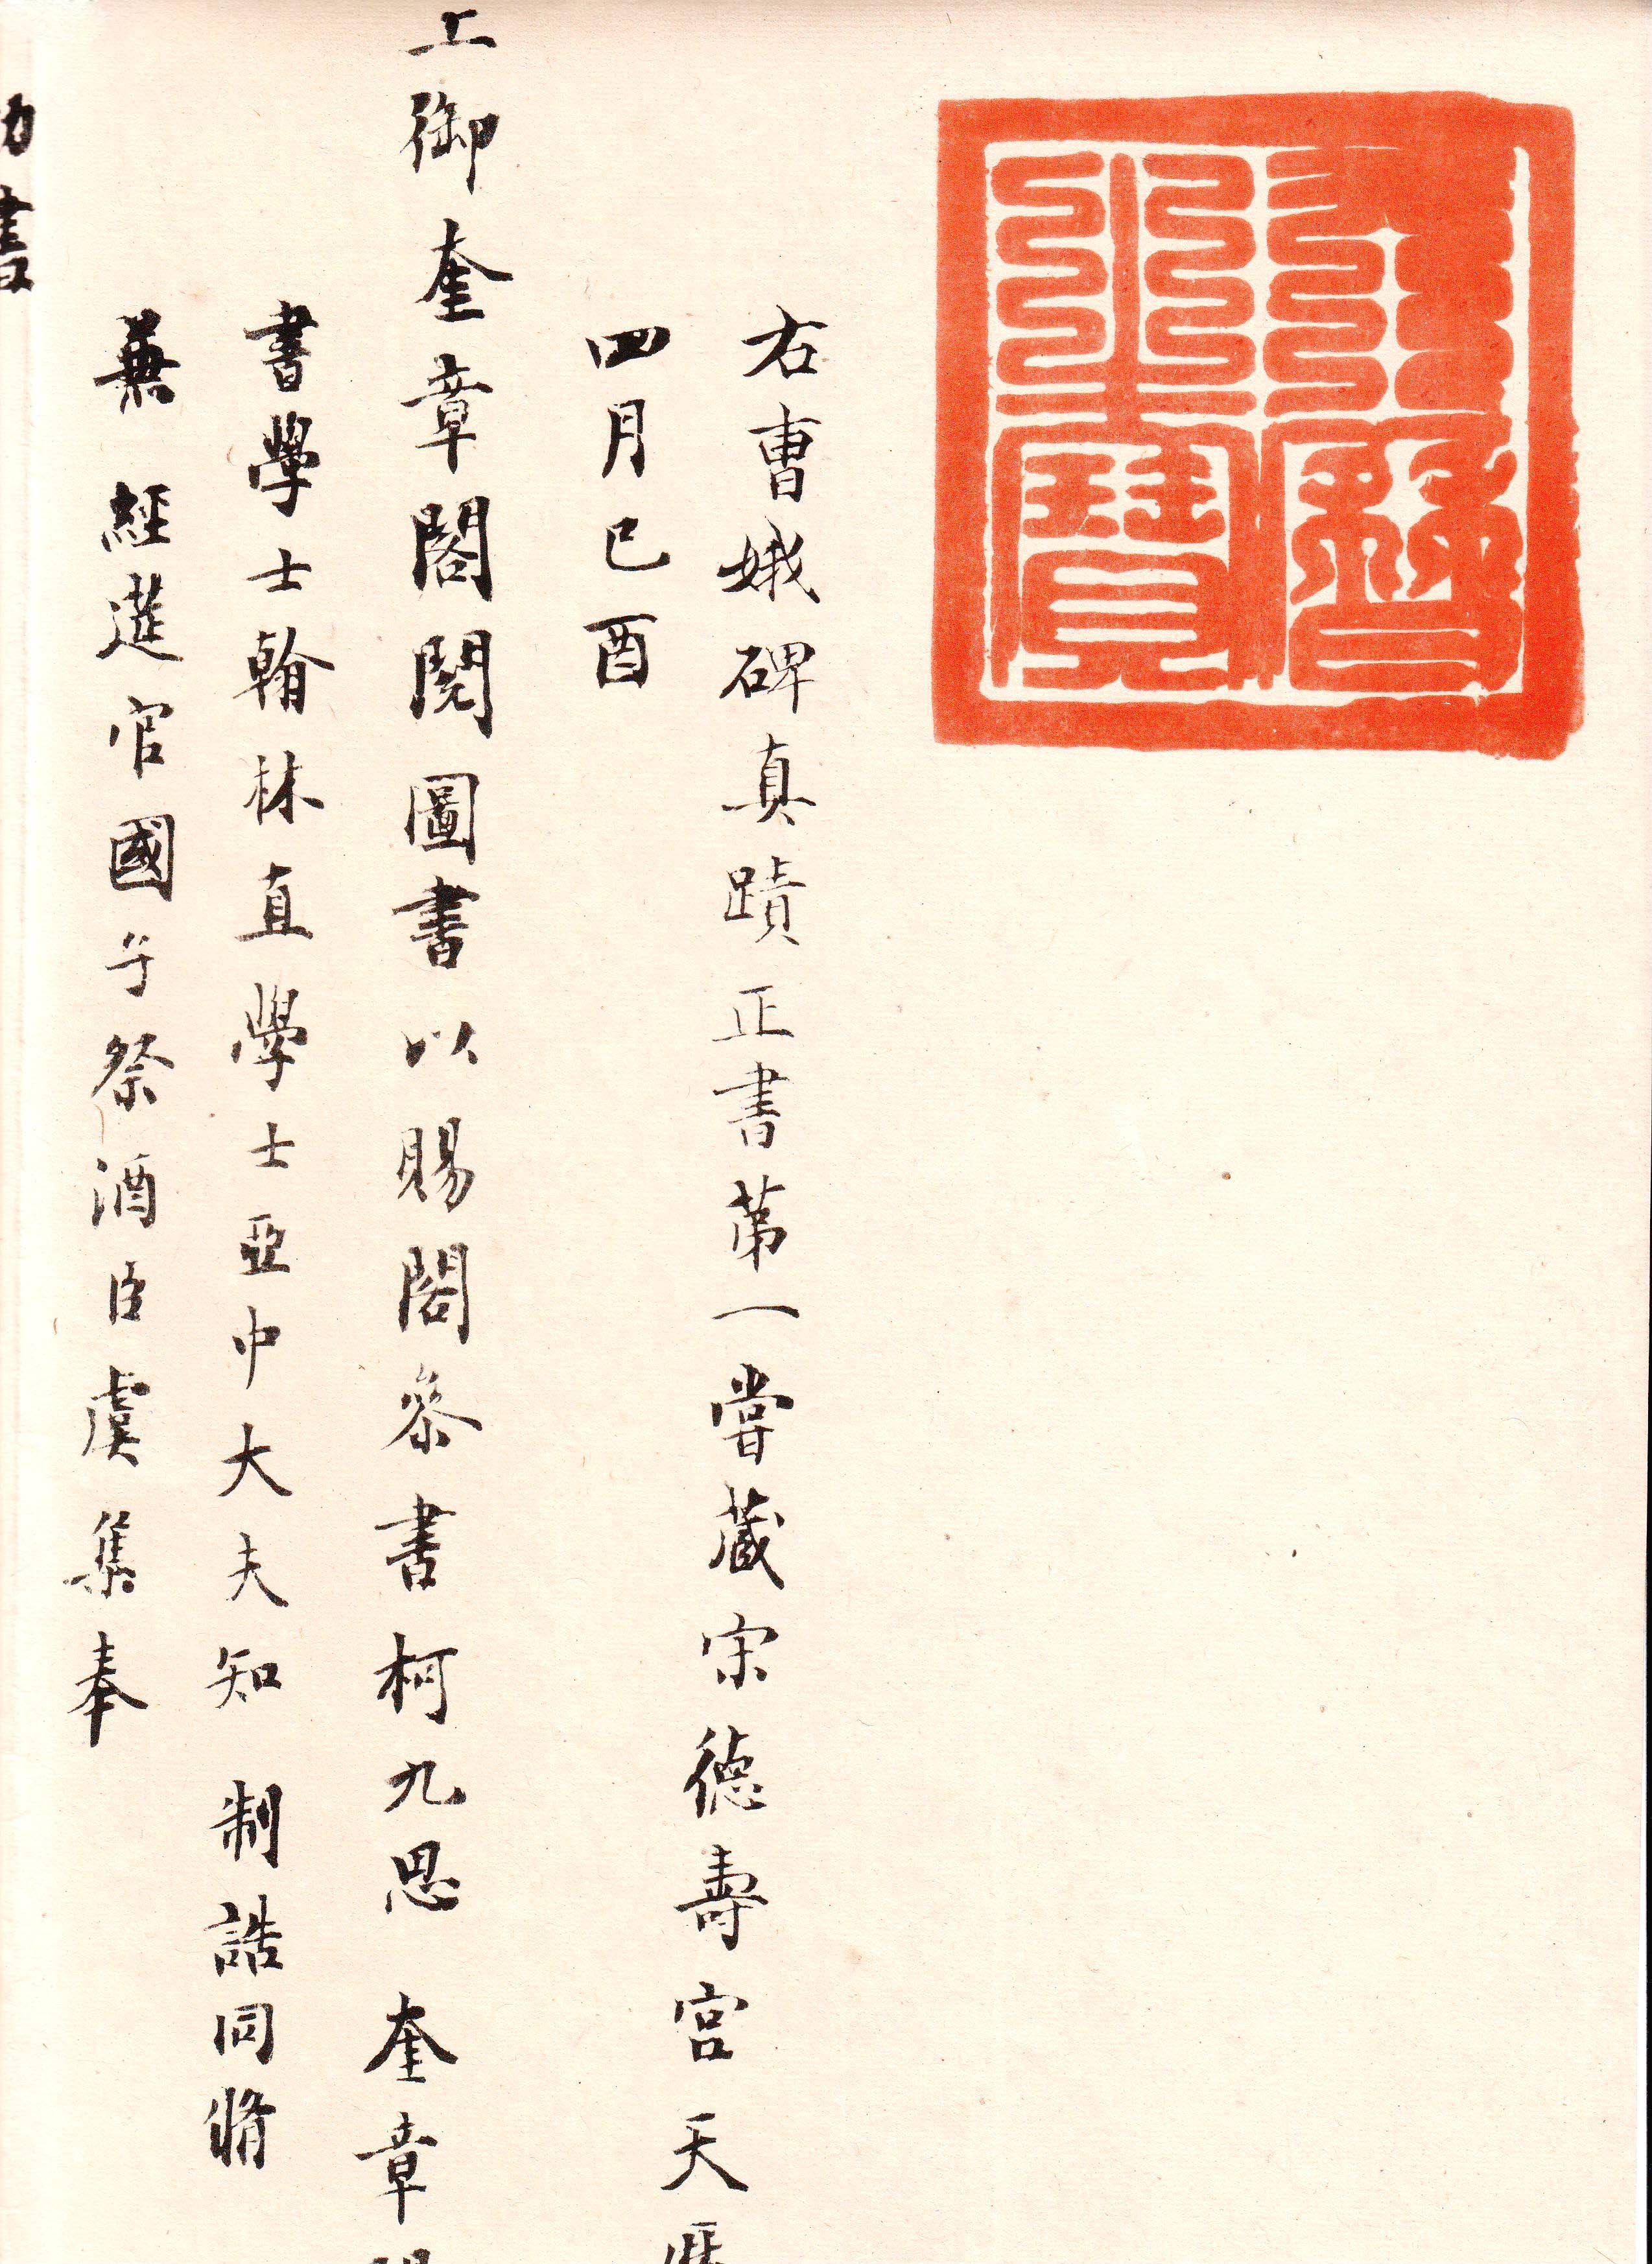 天曆之寶
右曹娥碑真蹟正書苐一嘗藏宋德壽宮天
四月己酉
上御奎章閣閱圖書以賜閣參書柯九思 奎章
書學士翰林直學士亞中大夫知 制誥同脩
兼 經筵官國子祭酒臣虞集奉
書